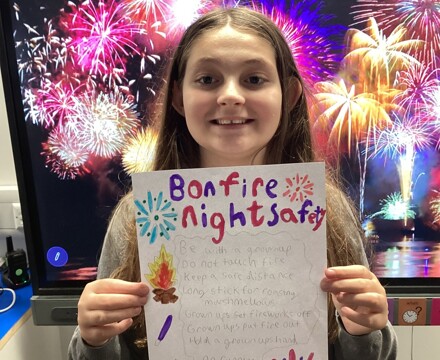 Bonfire
night safety
Be with a grownup
Do not touch fire
Keep a safe distance
Long stick for roasting
marshmellows
Grown ups set fireworks off
Grown ups put fire out
Hold a grownups hand